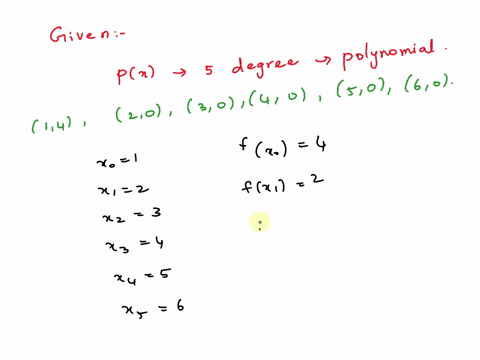 Given:-
P(x) → 5 degree → polynomial.
(1,4), (2,0), (3,0), (4,0), (5,0), (6,0).
x₀=1 f(x₀) = 4
x₁=2 f(x₁) = 2
x₂ = 3 :
x₃ =4
x₄ =5
x₅ = 6